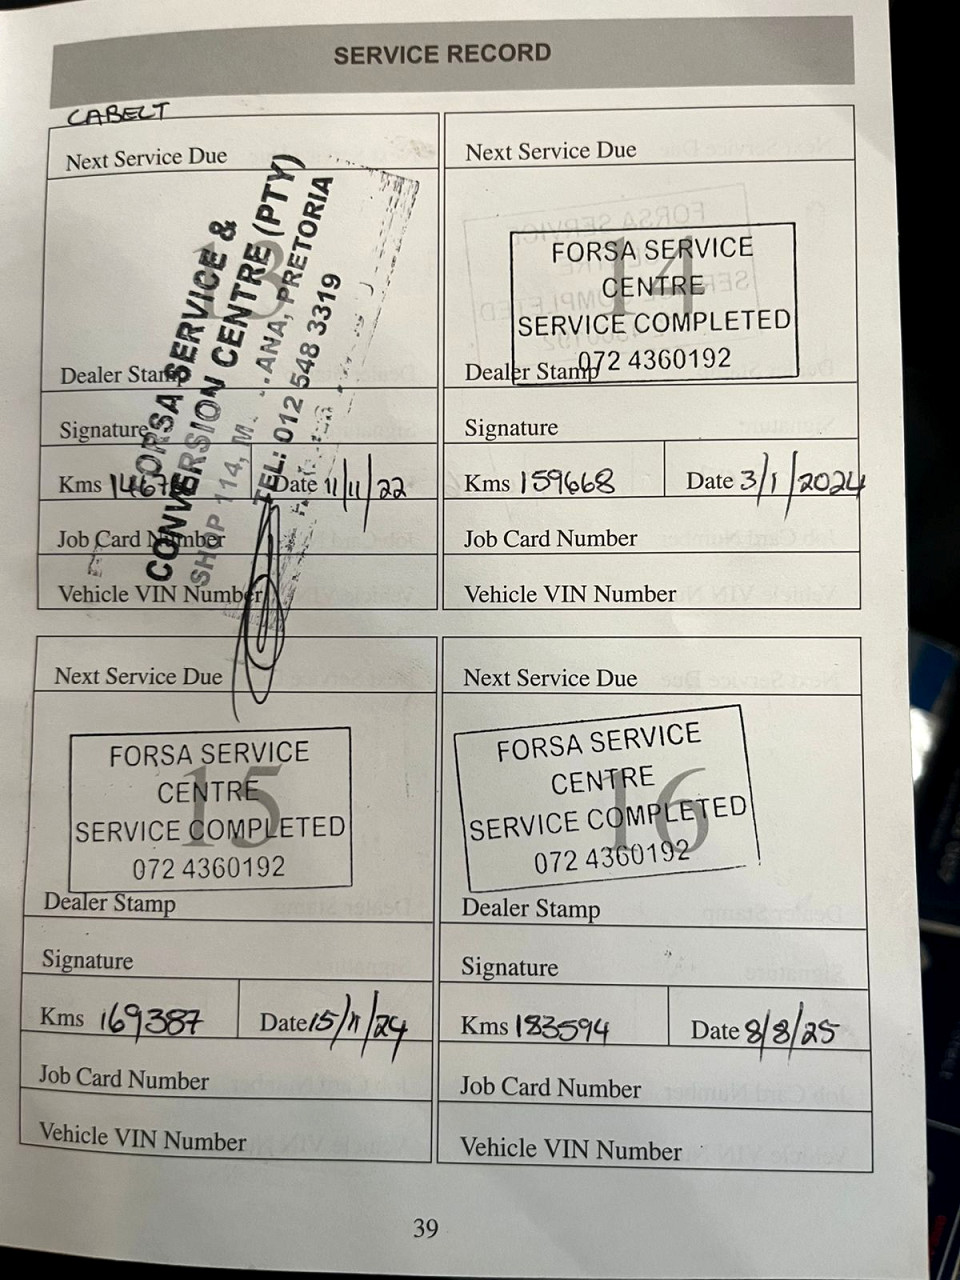 SERVICE RECORD
CABELT
Next Service Due
13
FORSA SERVICE &
CONVERSION CENTRE (PTY)
SHOP 114, ANA, PRETORIA
TEL: 012 548 3319
Dealer Stamp
Signature
Kms
Date 11/11/22
Job Card Number
Vehicle VIN Number
Next Service Due
14
FORSA SERVICE
CENTRE
SERVICE COMPLETED
072 4360192
Dealer Stamp
Signature
Kms 159668
Date 3/1/2024
Job Card Number
Vehicle VIN Number
Next Service Due
15
FORSA SERVICE
CENTRE
SERVICE COMPLETED
072 4360192
Dealer Stamp
Signature
Kms 169387
Date 15/11/24
Job Card Number
Vehicle VIN Number
Next Service Due
16
FORSA SERVICE
CENTRE
SERVICE COMPLETED
072 4360192
Dealer Stamp
Signature
Kms 183594
Date 8/8/25
Job Card Number
Vehicle VIN Number
39